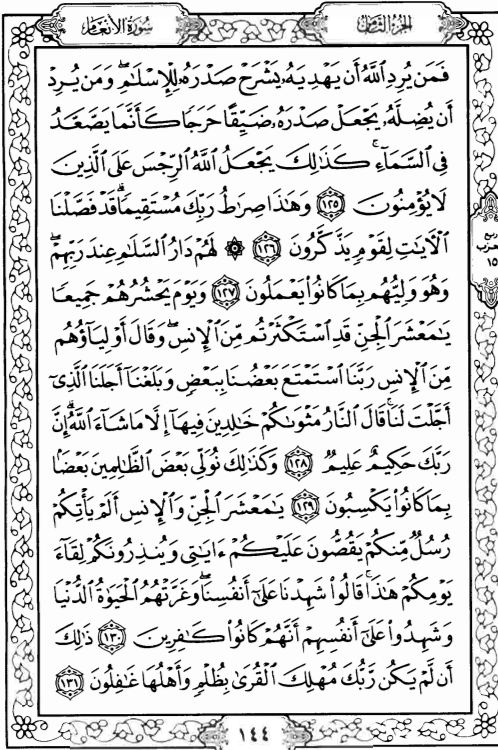 سورة الأنعام
الجزء الثامن
فَمَن يُرِدِ ٱللَّهُ أَن يَهۡدِيَهُۥ يَشۡرَحۡ صَدۡرَهُۥ لِلۡإِسۡلَٰمِۖ وَمَن يُرِدۡ
أَن يُضِلَّهُۥ يَجۡعَلۡ صَدۡرَهُۥ ضَيِّقًا حَرَجٗا كَأَنَّمَا يَصَّعَّدُ
فِي ٱلسَّمَآءِۚ كَذَٰلِكَ يَجۡعَلُ ٱللَّهُ ٱلرِّجۡسَ عَلَى ٱلَّذِينَ
لَا يُؤۡمِنُونَ ١٢٥ وَهَٰذَا صِرَٰطُ رَبِّكَ مُسۡتَقِيمٗاۗ قَدۡ فَصَّلۡنَا
ٱلۡأٓيَٰتِ لِقَوۡمٖ يَذَّكَّرُونَ ١٢٦ ۞ لَهُمۡ دَارُ ٱلسَّلَٰمِ عِندَ رَبِّهِمۡۖ
وَهُوَ وَلِيُّهُم بِمَا كَانُواْ يَعۡمَلُونَ ١٢٧ وَيَوۡمَ يَحۡشُرُهُمۡ جَمِيعٗا
يَٰمَعۡشَرَ ٱلۡجِنِّ قَدِ ٱسۡتَكۡثَرۡتُم مِّنَ ٱلۡإِنسِۖ وَقَالَ أَوۡلِيَآؤُهُم
مِّنَ ٱلۡإِنسِ رَبَّنَا ٱسۡتَمۡتَعَ بَعۡضُنَا بِبَعۡضٖ وَبَلَغۡنَآ أَجَلَنَا ٱلَّذِيٓ
أَجَّلۡتَ لَنَاۚ قَالَ ٱلنَّارُ مَثۡوَىٰكُمۡ خَٰلِدِينَ فِيهَآ إِلَّا مَا شَآءَ ٱللَّهُۗ إِنَّ
رَبَّكَ حَكِيمٌ عَلِيمٞ ١٢٨ وَكَذَٰلِكَ نُوَلِّي بَعۡضَ ٱلظَّٰلِمِينَ بَعۡضَۢا
بِمَا كَانُواْ يَكۡسِبُونَ ١٢٩ يَٰمَعۡشَرَ ٱلۡجِنِّ وَٱلۡإِنسِ أَلَمۡ يَأۡتِكُمۡ
رُسُلٞ مِّنكُمۡ يَقُصُّونَ عَلَيۡكُمۡ ءَايَٰتِي وَيُنذِرُونَكُمۡ لِقَآءَ
يَوۡمِكُمۡ هَٰذَاۚ قَالُواْ شَهِدۡنَا عَلَىٰٓ أَنفُسِنَاۖ وَغَرَّتۡهُمُ ٱلۡحَيَوٰةُ ٱلدُّنۡيَا
وَشَهِدُواْ عَلَىٰٓ أَنفُسِهِمۡ أَنَّهُمۡ كَانُواْ كَٰفِرِينَ ١٣٠ ذَٰلِكَ
أَن لَّمۡ يَكُن رَّبُّكَ مُهۡلِكَ ٱلۡقُرَىٰ بِظُلۡمٖ وَأَهۡلُهَا غَٰفِلُونَ ١٣١
ربع
حزب
١٥
١٤٤